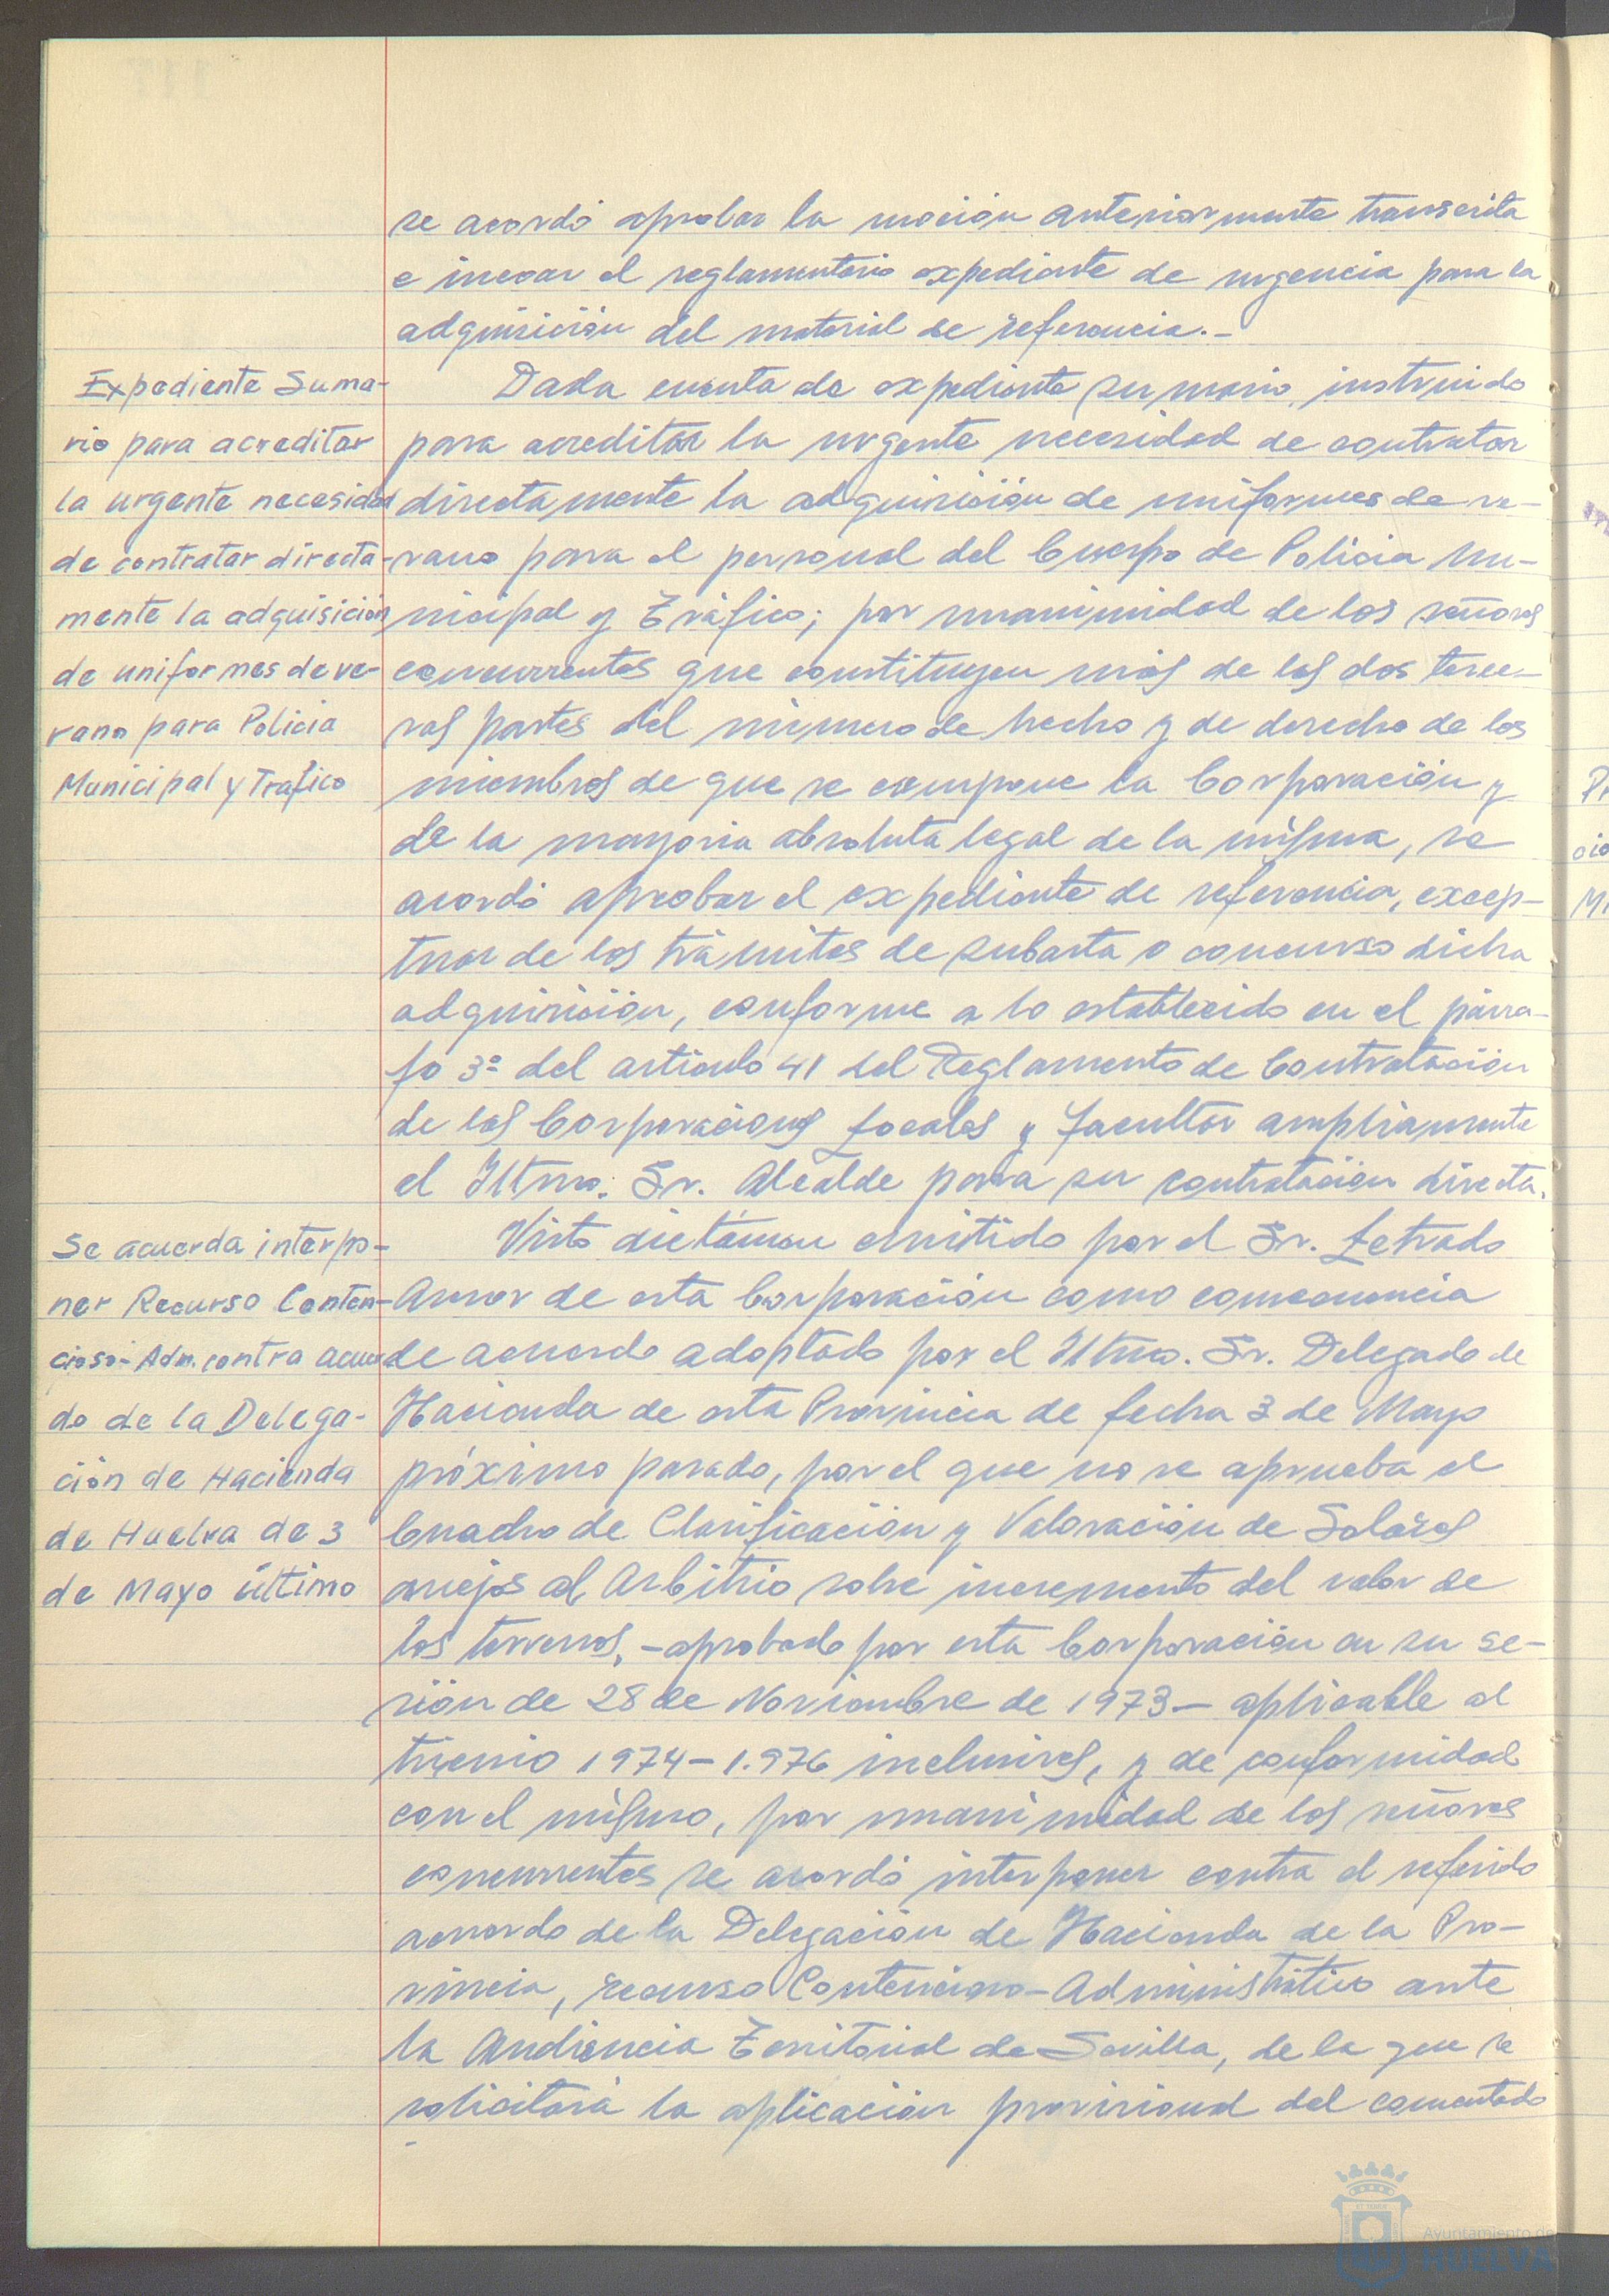 se acordó aprobar la moción anteriormente transcrita
e incoar el reglamentario expediente de urgencia para la
adquisición del material de referencia.-
Expediente Suma-
rio para acreditar
la urgente necesidad
de contratar directa-
mente la adquisición
de uniformes de ve-
rano para Policia
Municipal y Trafico
Dada cuenta de expediente sumario, instruido
para acreditar la urgente necesidad de contratar
directamente la adquisición de uniformes de ve-
rano para el personal del Cuerpo de Policia Mu-
nicipal y Tráfico; por unanimidad de los señores
concurrentes que constituyen más de las dos terce-
ras partes del número de hecho y de derecho de los
miembros de que se compone la Corporación y
de la mayoria absoluta legal de la misma, se
acordó aprobar el expediente de referencia, excep-
tuar de los trámites de subasta o concurso dicha
adquisición, conforme a lo establecido en el párra-
fo 3º del artículo 41 del Reglamento de Contratación
de las Corporaciones Locales y facultar ampliamente
el Iltmo. Sr. Alcalde para su contratación directa.
Se acuerda interpo-
ner Recurso Conten-
cioso-Adm. contra acuer
do de la Delega-
ción de Hacienda
de Huelva de 3
de Mayo último
Visto dictámen emitido por el Sr. Letrado
Asesor de esta Corporación como consecuencia
de acuerdo adoptado por el Iltmo. Sr. Delegado de
Hacienda de esta Provincia de fecha 3 de Mayo
próximo pasado, por el que no se aprueba el
Cuadro de Clasificación y Valoración de Solares
anejos al Arbitrio sobre incremento del valor de
los terrenos, -aprobado por esta Corporación en su se-
sión de 28 de Noviembre de 1973- aplicable al
trienio 1974-1.976 inclusives, y de conformidad
con el mismo, por unanimidad de los señores
concurrentes se acordó interponer contra el referido
acuerdo de la Delegación de Hacienda de la Pro-
vincia, recurso Contencioso-Administrativo ante
la Audiencia Territorial de Sevilla, de la que se
solicitará la aplicación provisional del comentado
Pr
cio
Mi
Ayuntamiento de
HUELVA